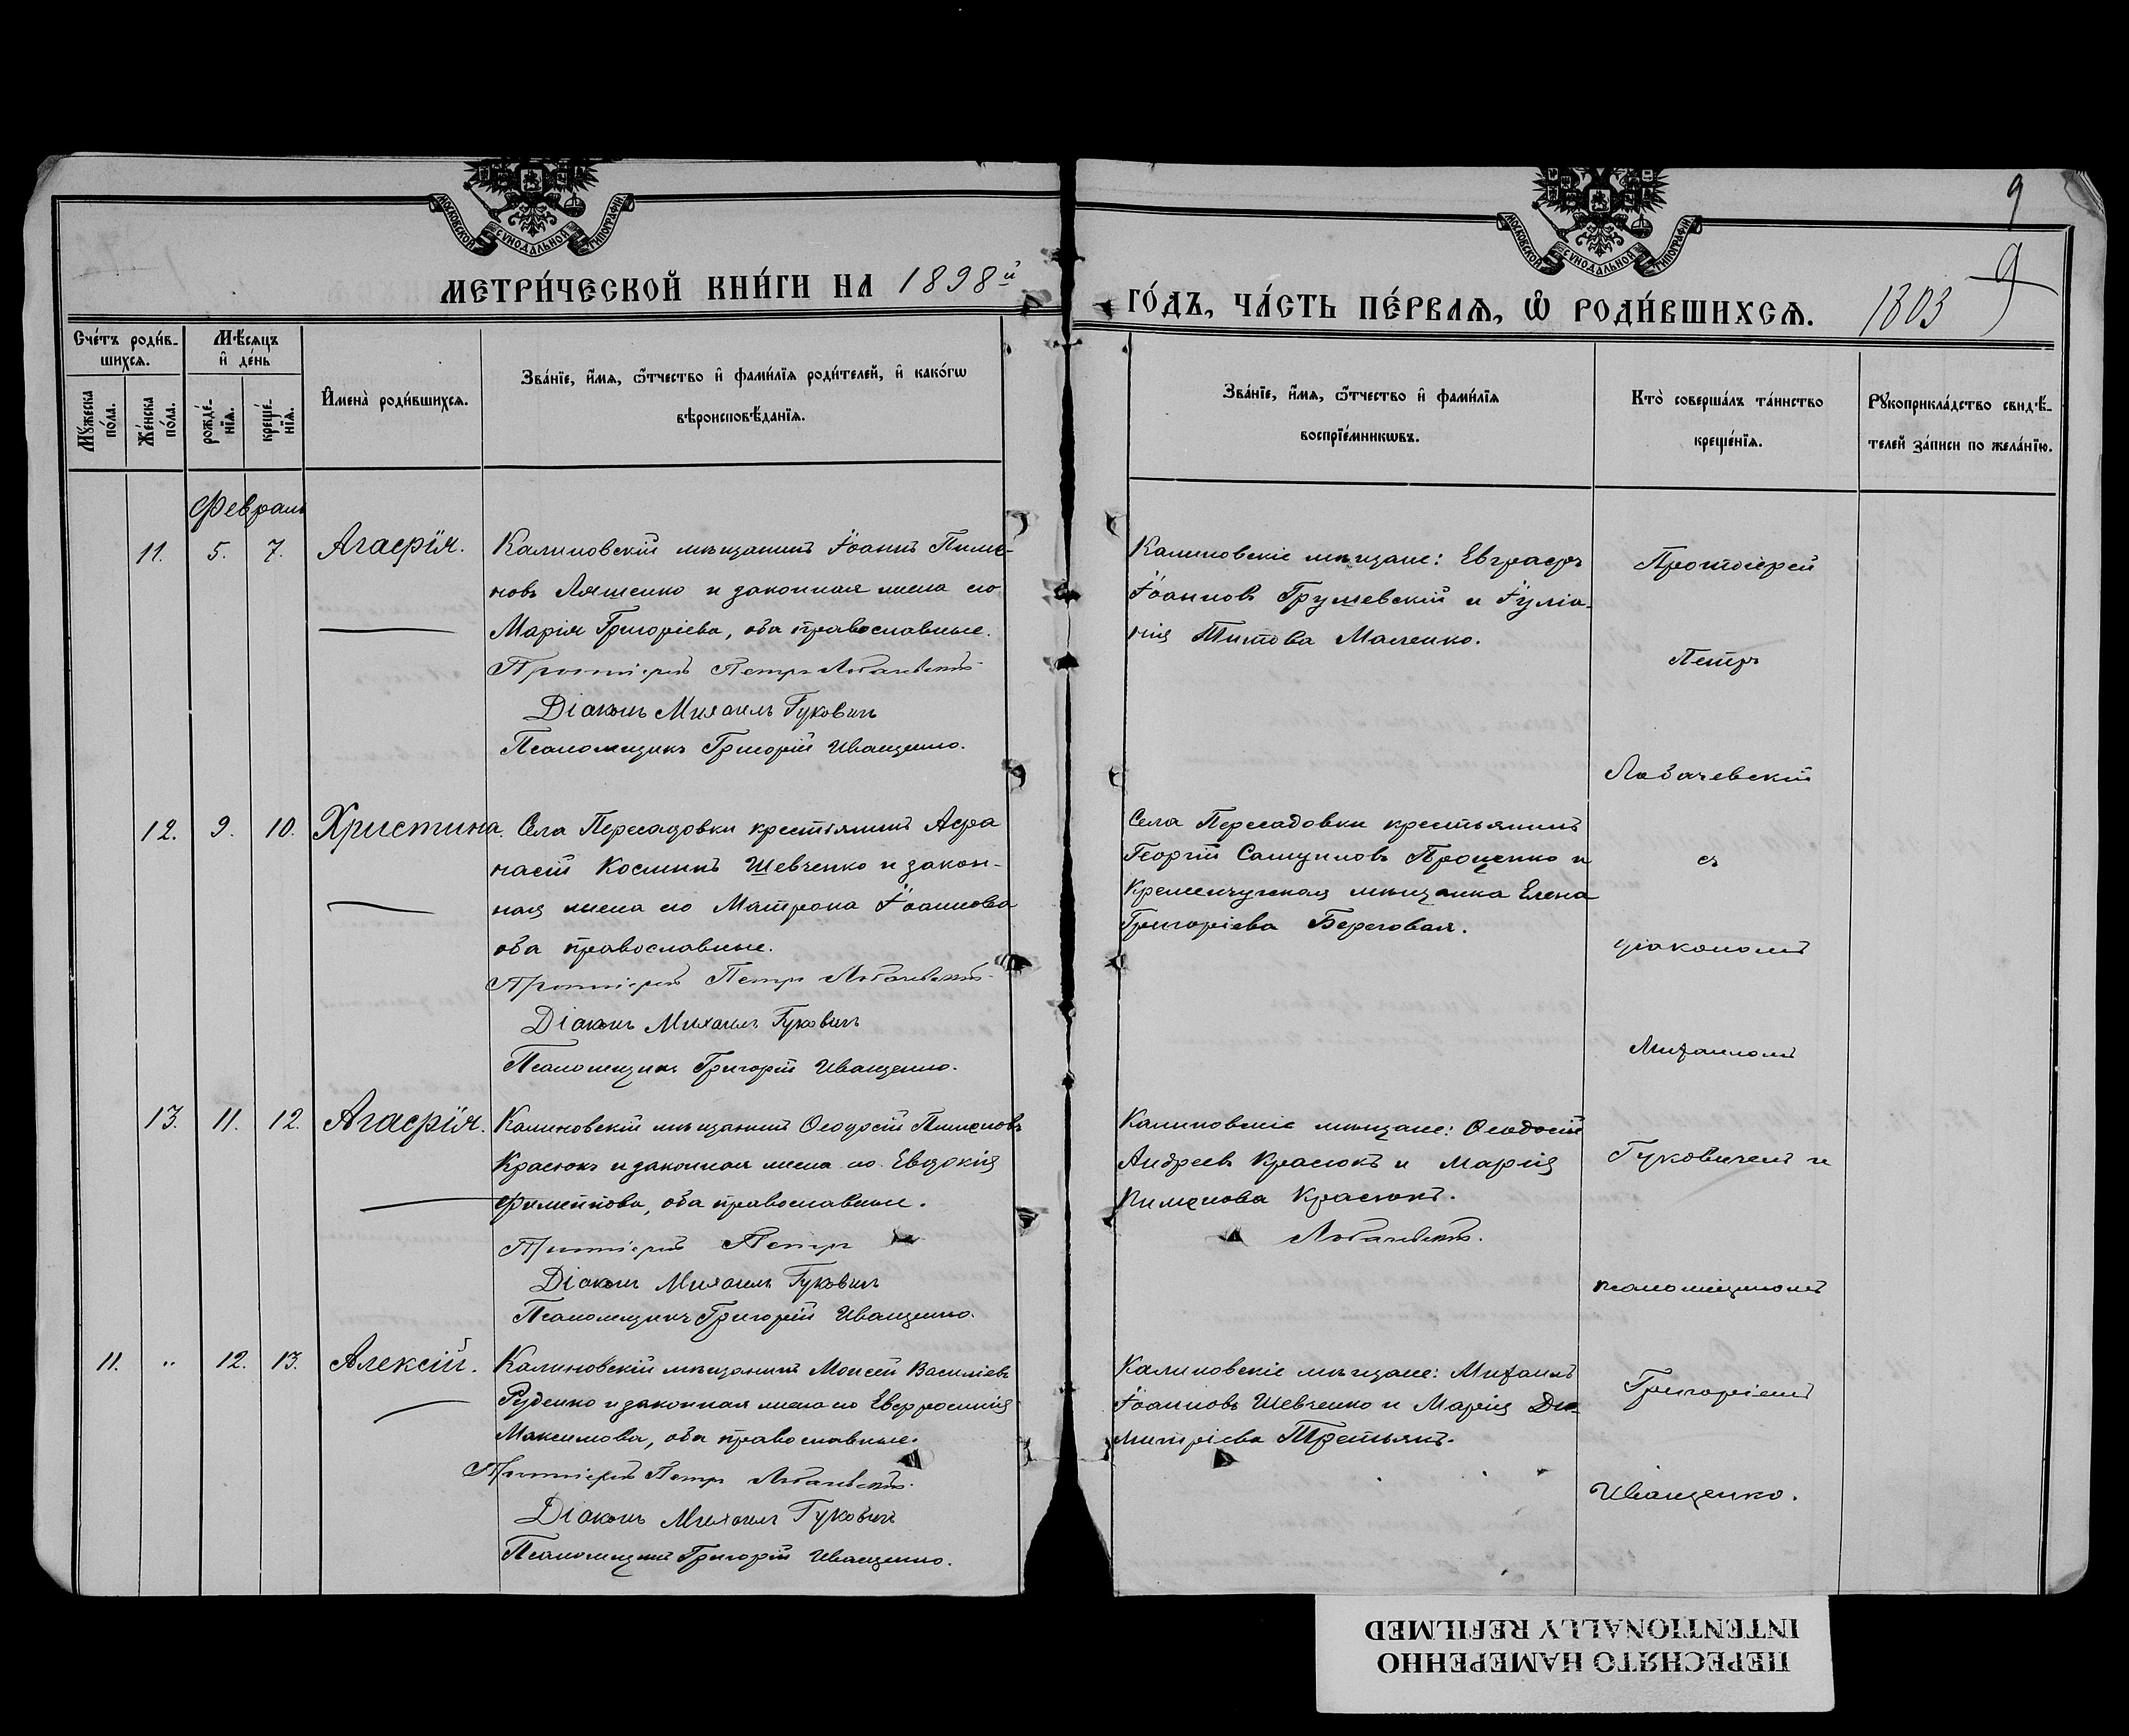 МОСКОВСКОЙ СУНОДАЛЬНОЙ ТИПОГРАФІИ
МОСКОВСКОЙ СУНОДАЛЬНОЙ ТИПОГРАФІИ
9
9
МЕТРИ́ЧЕСКОЙ КНИ́ГИ НА 1898й
ГО́ДЪ, ЧА́СТЬ ПЕ́РВАѦ, Ѡ҆ РОДИ́ВШИХСѦ. 1803
Сче́тъ роди́в-
шихсѧ.
Мѣсѧцъ
и҆ де́нь
Мꙋ́жеска
по́ла.
Же́нска
по́ла.
рожде́-
нїѧ.
креще́-
нїѧ.
И҆мена̀ роди́вшихсѧ.
Зва́нїе, и҆́мѧ, ѻ҆́тчество и҆ фами́лїѧ роди́телей, и҆ како́гѡ
вѣроисповѣ́данїѧ.
Зва́нїе, и҆́мѧ, ѻ҆́тчество и҆ фами́лїѧ
воспрїе́мникѡвъ.
Кто̀ соверша́лъ та́инство
креще́нїѧ.
Рꙋкоприкла́дство свидѣ́-
телей за́писи по жела́нїю.
Февраль
11. 5. 7. Агафія.
Калиновскій мѣщанинъ Іоаннъ Пиме-
новъ Ляшенко и законная жена его
Марія Григоріева, оба православные.
Протоіерей Петръ Лобачевскій
Діаконъ Михаилъ Гуковичъ
Псаломщикъ Григорій Иващенко.
Калиновскіе мѣщане: Евграфъ
Іоанновъ Грушевскій и Іуліа-
нія Титова Маленко.
12. 9. 10. Христина.
Села Пересадовки крестьянинъ Афа
насій Косминъ Шевченко и закон-
ная жена его Матрона Іоаннова
оба православные.
Протоіерей Петръ Лобачевскій
Діаконъ Михаилъ Гуковичъ
Псаломщикъ Григорій Иващенко.
Села Пересадовки крестьянинъ
Георгій Самуиловъ Проценко и
Кременчугская мѣщанка Елена
Григоріева Береговая.
13. 11. 12. Агафія.
Калиновскій мѣщанинъ Ѳеодосій Пименовъ
Красюкъ и законная жена его Евдокія
оба православные.
Протоіерей Петръ
Лобачевскій.
Діаконъ Михаилъ Гуковичъ
Псаломщикъ Григорій Иващенко.
Калиновскіе мѣщане: Ѳеодосій
Андреевъ Красюкъ и Марія
Пименова Красюкъ.
11. " 12. 13. Алексій.
Калиновскій мѣщанинъ Моисей Василіевъ
Руденко и законная жена его Евфросинія
Максимова, оба православные.
Протоіерей Петръ Лобачевскій.
Діаконъ Михаилъ Гуковичъ
Псаломщикъ Григорій Иващенко.
Калиновскіе мѣщане: Михаилъ
Іоанновъ Шевченко и Марія Ди-
митріева Третьякъ.
Протоіерей
Петръ
Лобачевскій
съ
діакономъ
Михаиломъ
Гуковичемъ и
псаломщикомъ
Григоріемъ
Иващенко.
ПЕРЕСНЯТО НАМЕРЕННО
INTENTIONALLY REFILMED